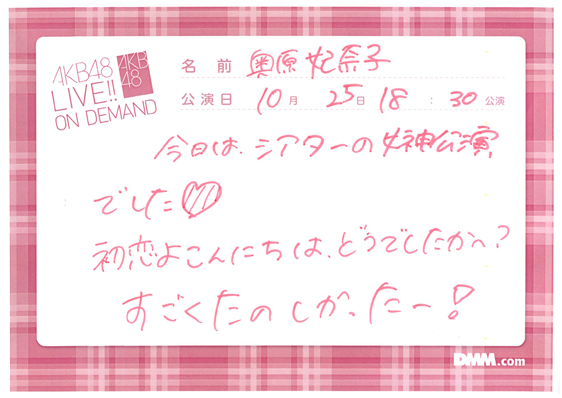 AKB48
LIVE!!
ON DEMAND
AKB
48
名前 奥原妃奈子
公演日 10月 25日 18:30公演
今日は、シアターの女神公演
でした♡
初恋よこんにちは、どうでしたかへ?
すごくたのしかったー!
DMM.com